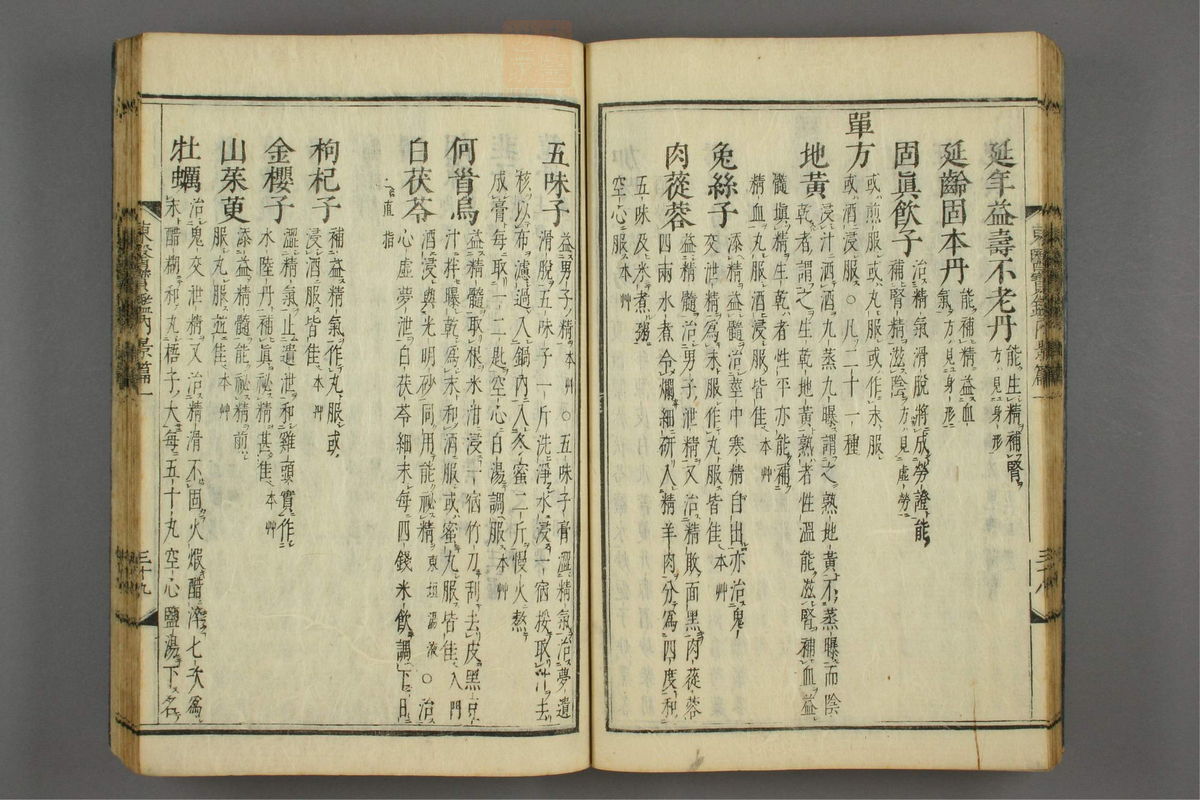 延年益壽不老丹能生精補腎
方見身形
延齡固本丹能補精益血
氣方見身形
固眞飮子治精氣滑脫將成勞證能
補腎精滋陰方見虛勞
單方或煎服或丸服或作末服
或酒浸服○凡二十一種
地黃浸汁酒九蒸九曝謂之熟地黃不蒸曝而陰
乾者謂之生乾地黃熟者性溫能滋腎補血益
髓塡精生乾者性平亦能補
精血丸服酒浸服皆佳本艸
兔絲子添精益髓治莖中寒精自出亦治鬼
交泄精爲末服作丸服皆佳本艸
肉蓯蓉治男子泄精又治精敗面黑肉蓯蓉
四兩水煮令爛細研入精羊肉分爲四度和
五味及米煮粥
空心服本艸
五味子益男子精本艸○五味子膏澁精氣治夢遺
滑脫五味子一斤洗淨水浸一宿挼取汁去
核以布濾過入鍋內入冬蜜二斤慢火熬
成膏每取一二匙空心白湯調服本艸
何首烏益精髓取根米泔浸一宿竹刀刮去皮黑豆
汁拌曝乾爲末和酒服或蜜丸服皆佳入門
白茯苓酒浸與光明砂同用能祕精東垣湯液○治
心虛夢泄白茯苓細末每四錢米飮調下日
三直指
枸杞子補益精氣作丸服或
浸酒服皆佳本艸
金櫻子澀精氣止遺泄和雞頭實作
水陸丹補眞祕精甚佳本艸
山茱萸添益精髓能祕精煎
服丸服並佳本艸
牡蠣治鬼交泄精又治精滑不固火煆醋淬七次爲
末醋糊和丸梧子大每五十丸空心鹽湯下名
東醫寶鑑內景篇一
三十八
東醫寶鑑內景篇一
三十九